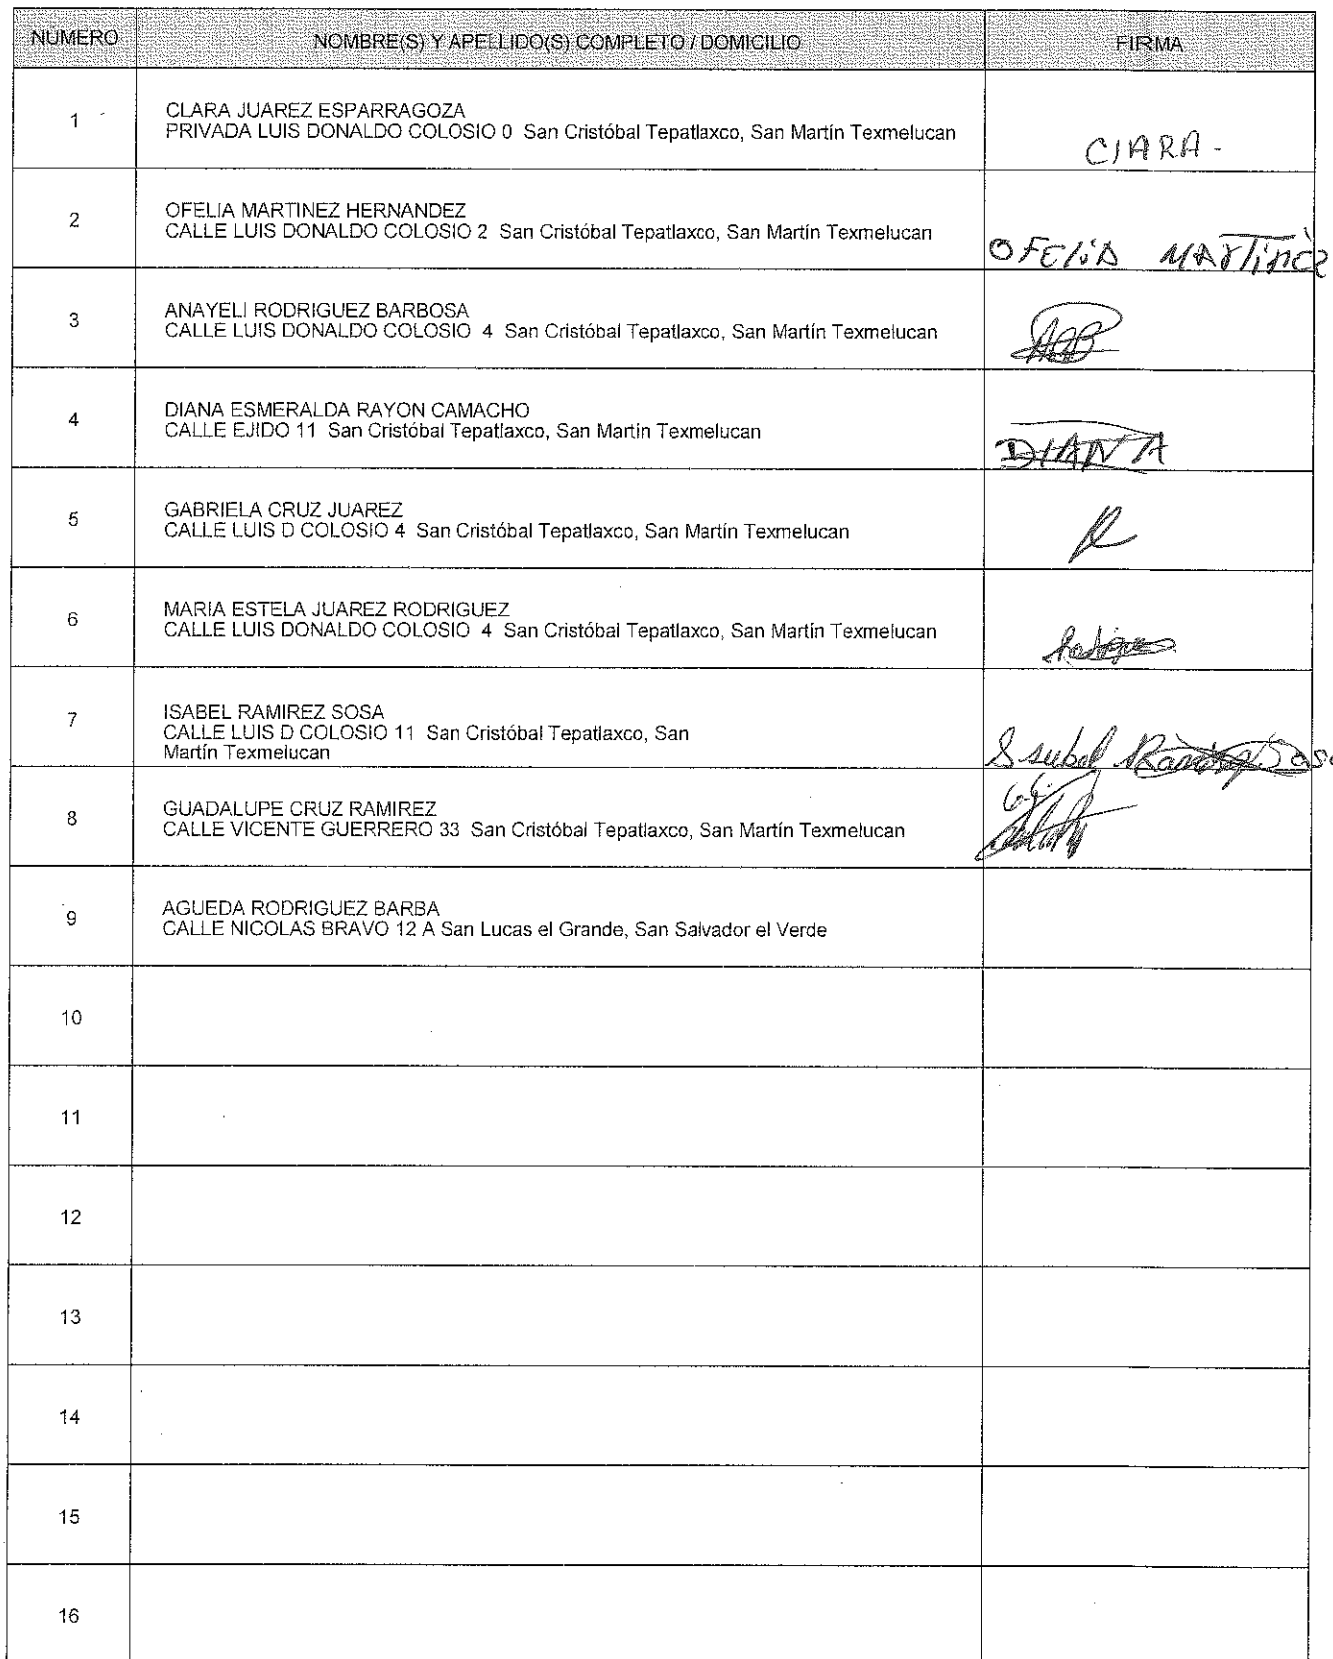 NUMERO NOMBRE(S) Y APELLIDO(S) COMPLETO / DOMICILIO FIRMA
1 CLARA JUAREZ ESPARRAGOZA
PRIVADA LUIS DONALDO COLOSIO 0 San Cristóbal Tepatlaxco, San Martín Texmelucan
ClARA-
2 OFELIA MARTINEZ HERNANDEZ
CALLE LUIS DONALDO COLOSIO 2 San Cristóbal Tepatlaxco, San Martín Texmelucan
OFEliA MARTinez
3 ANAYELI RODRIGUEZ BARBOSA
CALLE LUIS DONALDO COLOSIO 4 San Cristóbal Tepatlaxco, San Martín Texmelucan
4 DIANA ESMERALDA RAYON CAMACHO
CALLE EJIDO 11 San Cristóbal Tepatlaxco, San Martín Texmelucan
DIANA
5 GABRIELA CRUZ JUAREZ
CALLE LUIS D COLOSIO 4 San Cristóbal Tepatlaxco, San Martín Texmelucan
6 MARIA ESTELA JUAREZ RODRIGUEZ
CALLE LUIS DONALDO COLOSIO 4 San Cristóbal Tepatlaxco, San Martín Texmelucan
7 ISABEL RAMIREZ SOSA
CALLE LUIS D COLOSIO 11 San Cristóbal Tepatlaxco, San
Martín Texmelucan
8 GUADALUPE CRUZ RAMIREZ
CALLE VICENTE GUERRERO 33 San Cristóbal Tepatlaxco, San Martín Texmelucan
9 AGUEDA RODRIGUEZ BARBA
CALLE NICOLAS BRAVO 12 A San Lucas el Grande, San Salvador el Verde
10
11
12
13
14
15
16